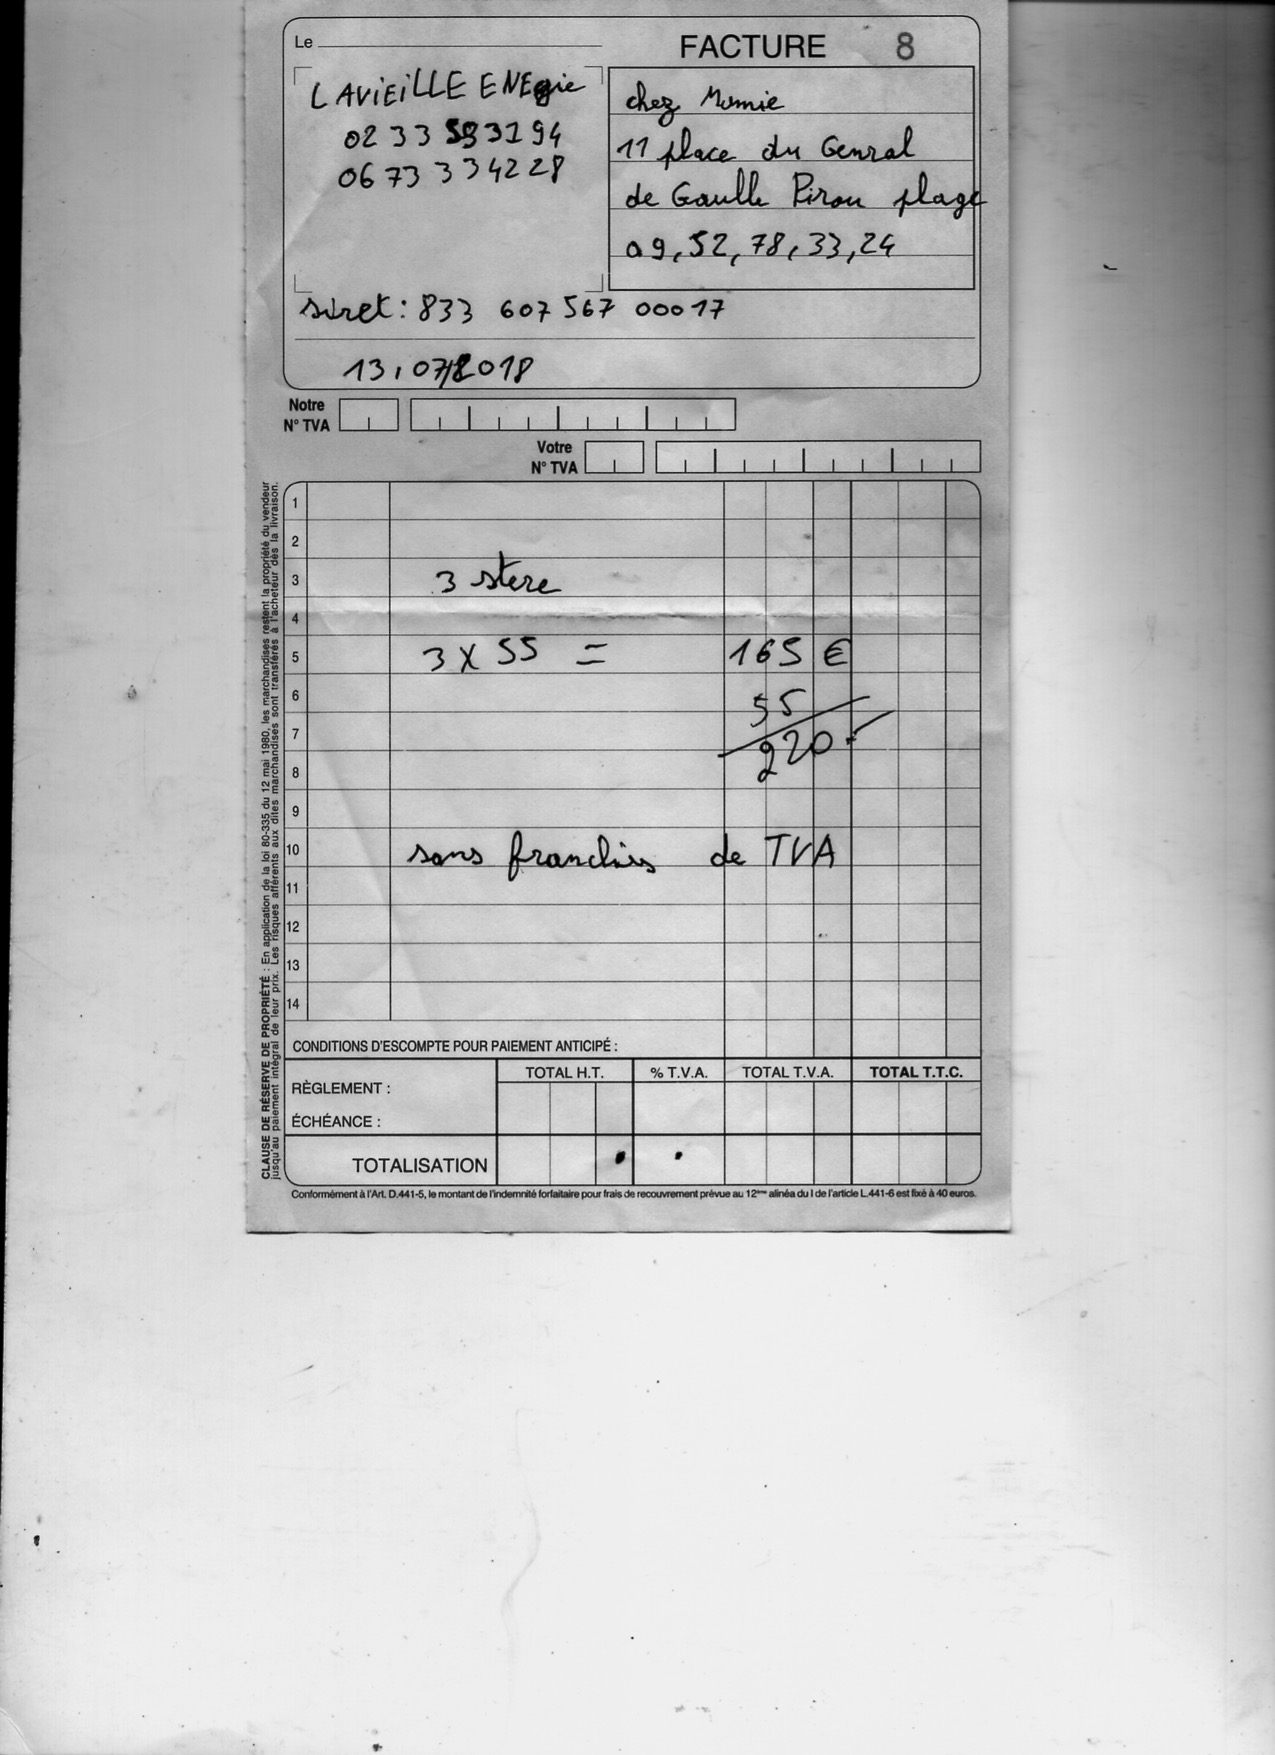 Le
FACTURE 8
LAVIEILLE ENEgie
02 33 593194
06 73 33 42 28
chez Mumie
11 place du Genral
de Gaulle Pirou plage
09,52,78,33,24
siret : 833 607 567 00017
13,07/2018
Notre
N° TVA
Votre
N° TVA
CLAUSE DE RÉSERVE DE PROPRIÉTÉ : En application de la loi 80-335 du 12 mai 1980, les marchandises restent la propriété du vendeur
jusqu'au paiement intégral de leur prix. Les risques afférents aux dites marchandises sont transférés à l'acheteur dès la livraison.
1
2
3 3 stere
4
5 3 X 55 = 165 €
6 55
7 220
8
9
10 sans franchis de TVA
11
12
13
14
CONDITIONS D'ESCOMPTE POUR PAIEMENT ANTICIPÉ :
RÈGLEMENT :
ÉCHÉANCE :
TOTAL H.T. % T.V.A. TOTAL T.V.A. TOTAL T.T.C.
TOTALISATION
Conformément à l'Art. D.441-5, le montant de l'indemnité forfaitaire pour frais de recouvrement prévue au 12ème alinéa du I de l'article L.441-6 est fixé à 40 euros.